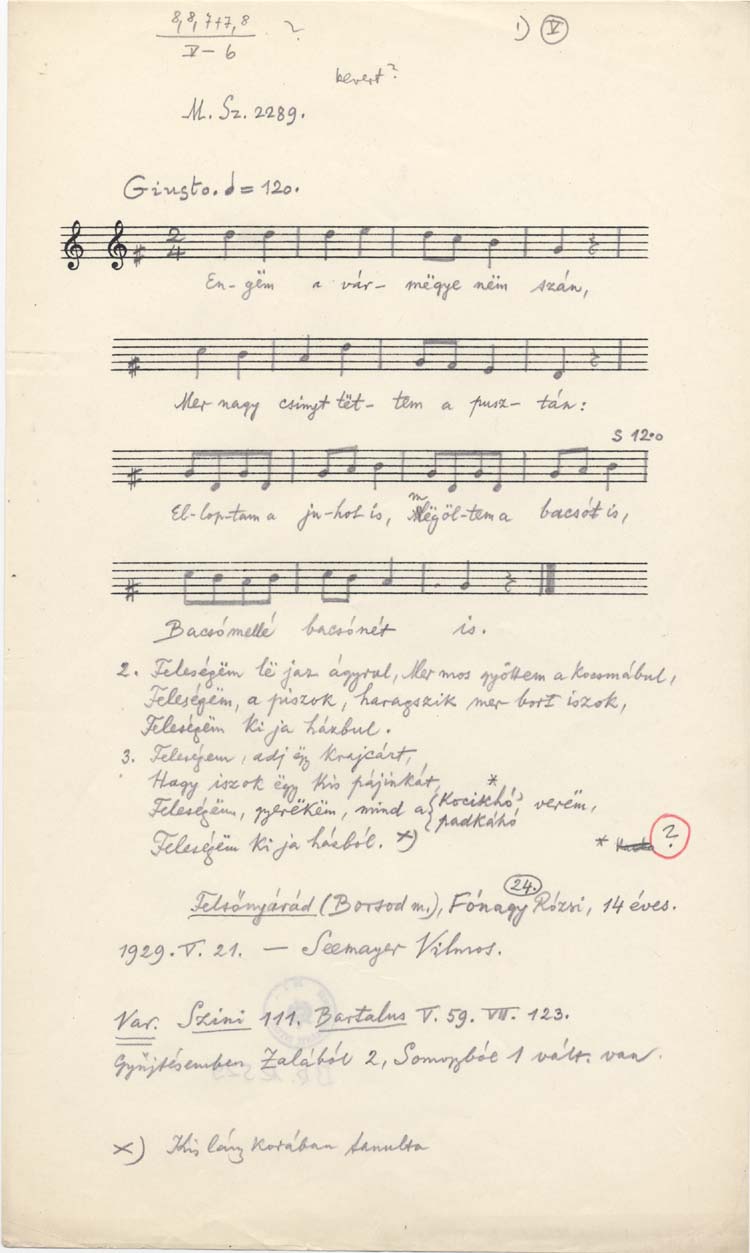 8, 8, 7+7, 8 ?
V – 6
1) V
kevert?
M. Sz. 2289.
Giusto. = 120.
2
4
En-gëm a vár- mëgye nëm szán,
Mer nagy csinyt tët- tem a pusz- tán:
S 12:0
El-lop-tam a ju-hot is, Mëgöl-tem a bacsót is,
Bacsómellé bacsónét is.
2. Feleségëm lë jaz ágyrul, Mer mos gyöttem a kocsmábul,
Feleségëm, a piszok, haragszik mer bort iszok,
Feleségëm ki ja házbul.
3. Feleségem, adj ëgy krajcárt,
Hagy iszok ëgy kis pájinkát, *
Feleségëm, gyerëkëm, mind a { kocikhó } verëm,
{ padkáhó
Feleségëm ki ja házból. x)
* ?
24.
Felsőnyárád (Borsod m.), Fónagy Rózsi, 14 éves.
1929. V. 21. — Seemayer Vilmos.
Var. Szini 111. Bartalus V. 59. VII. 123.
Gyűjtésemben Zalából 2, Somogyból 1 vált. van.
x) Kis lány korában tanulta